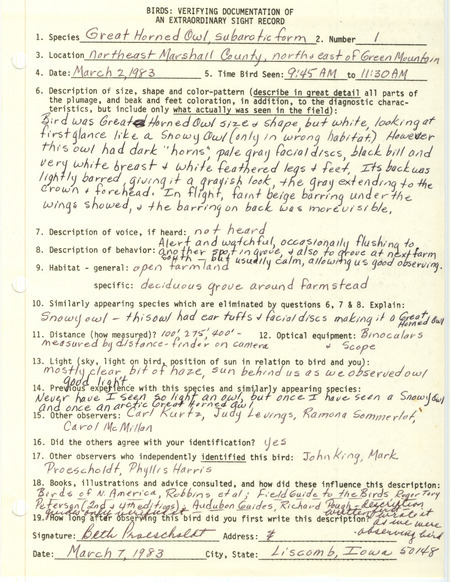 BIRDS: VERIFYING DOCUMENTATION OF
AN EXTRAORDINARY SIGHT RECORD
1. Species Great Horned Owl, subarctic form 2. Number 1
3. Location northeast Marshall County, northeast of Green Mountain
4. Date: March 2, 1983 5. Time Bird Seen: 9:45 AM to 11:30 AM
6. Description of size, shape and color-pattern (describe in great detail all parts of
the plumage, and beak and feet coloration, in addition, to the diagnostic charac-
teristics, but include only what actually was seen in the field):
Bird was Great Horned Owl size & shape, but white, looking at
first glance like a Snowy Owl (only in wrong habitat). However
this owl had dark "horns" pale gray facial discs, black bill and
very white breast & white feathered legs & feet. Its back was
lightly barred, giving it a grayish look, & the gray extending to the
crown & forehead. In flight, faint beige barring under the
wings showed, & the barring on back was more visible.
7. Description of voice, if heard: not heard
8. Description of behavior: Alert and watchful, occasionally flushing to
another spot in grove, & also to grove at next farm
south - but usually calm, allowing us good observing.
9. Habitat - general: open farmland
specific: deciduous grove around farmstead
10. Similarly appearing species which are eliminated by questions 6, 7 & 8. Explain:
Snowy owl - this owl had ear tufts & facial discs making it a Great
Horned Owl
11. Distance (how measured)? 100', 275', 400' - 12. Optical equipment: Binoculars
measured by distance-finder on camera & Scope
13. Light (sky, light on bird, position of sun in relation to bird and you):
mostly clear, bit of haze, sun behind us as we observed owl
good light
14. Previous experience with this species and similarly appearing species:
Never have I seen so light an owl, but once I have seen a Snowy Owl
and once an arctic Great Horned Owl
15. Other observers: Carl Kurtz, Judy Levings, Ramona Sommerlot,
Carol McMillan
16. Did the others agree with your identification? yes
17. Other observers who independently identified this bird: John King, Mark
Proescholdt, Phyllis Harris
18. Books, illustrations and advice consulted, and how did these influence this description:
Birds of N. America, Robbins et al; Field Guide to the Birds Roger Tory
Peterson (2nd & 4th editions); Audubon Guides, Richard Pough - description
19. How long after observing this bird did you first write this description?
as we were
observing bird
Signature: Beth Proescholdt Address:
Date: March 7, 1983 City, State: Liscomb, Iowa 50148